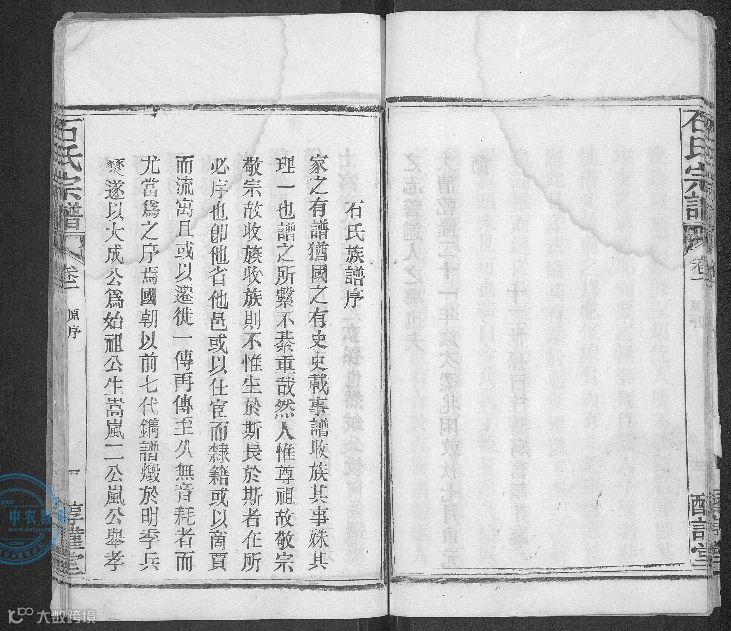 石氏宗譜
卷一
石氏族譜序
家之有譜猶國之有史史載事譜收族其事殊其
理一也譜之所繫不綦重哉然人惟尊祖故敬宗
敬宗故收族收族則不惟生於斯長於斯者在所
必序也卽他省他邑或以仕宦而隸籍或以商賈
而流寓且或以遷徙一傳再傳至久無音耗者而
尤當爲之序焉國朝以前七代鐫譜燬於明季兵
燹遂以大成公爲始祖公生嵩嵐二公嵐公舉孝
石氏宗譜
卷一
原序
一
大数跨境